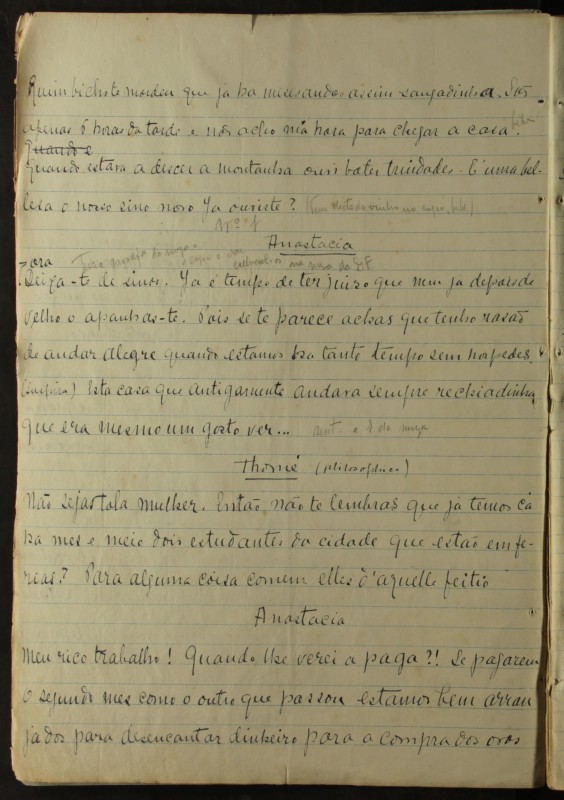 que bichote mordeu que já ha meses andas assim zangadinha. São
apenas 6 horas da tarde e não acho má hora para chegar a casa.
Quando e
Quando estava a descer a montanha ouvi bater trindades. E' uma bel-
leza o nosso sino novo Ya ouviste?
Anastacia
ora
Deixa-te de sinos. Ya é tempo de ter juizo que nem já depois de
velho o apanhas-te. Pois se te parece achas que tenho rasão
de andar alegre quando estamos ha tanto tempo sem hospedes.
(suspira) Esta casa que antigamente andava sempre recheiadinha
que era mesmo um gosto ver...
Thomé (philosophico)
Não sejas tola mulher. Então não te lembras que já temos cá
ha mes e meio dois estudantes da cidade que estão em fe-
rias? Para alguma coisa comem elles d'aquelle feitio
Anastacia
Meu rico trabalho! Quando lhe verei a paga?! Se pagarem
o segundo mes como o outro que passou estamos bem arran
jados para desencantar dinheiro para a compra dos ovos